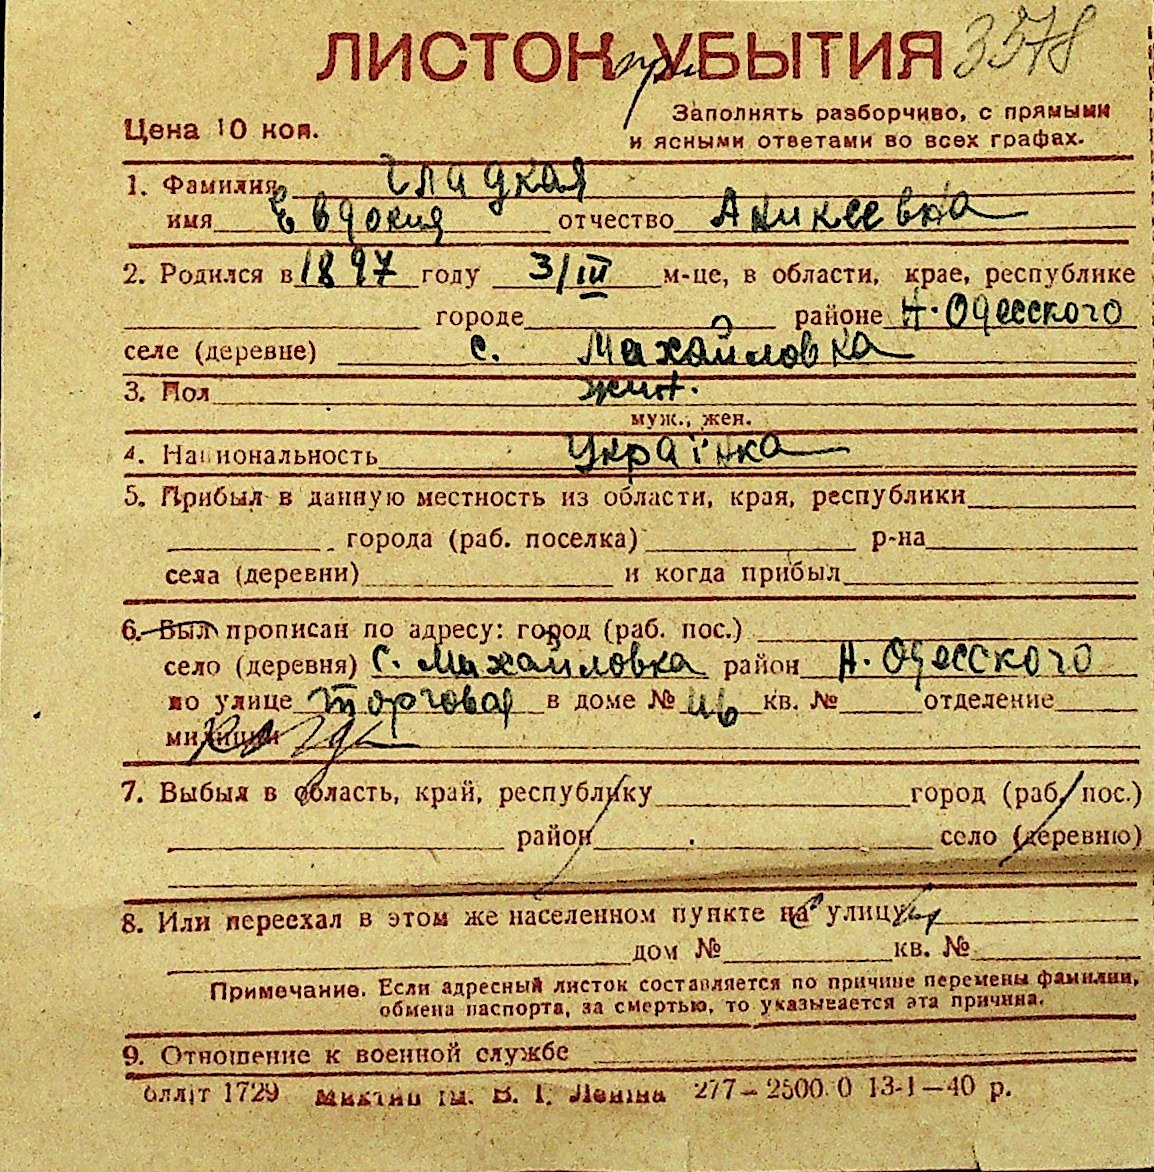 ЛИСТОК при УБЫТИЯ 3378
Цена 10 коп.
Заполнять разборчиво, с прямыми
и ясными ответами во всех графах.
1. Фамилия Гладкая
имя Евдокия отчество Аникеевна
2. Родился в 1897 году 3/III м-це, в области, крае, республике
городе районе Н. Одесского
селе (деревне) с. Михайловка
3. Пол жин.
муж., жен.
4. Национальность Українка
5. Прибыл в данную местность из области, края, республики
города (раб. поселка) р-на
села (деревни) и когда прибыл
6. Был прописан по адресу: город (раб. пос.)
село (деревня) с. Михайловка район Н. Одесского
по улице Торговая в доме № кв. № отделение
милиции
7. Выбыл в область, край, республику город (раб. пос.)
район село (деревню)
8. Или переехал в этом же населенном пункте на улицу
дом № кв. №
Примечание. Если адресный листок составляется по причине перемены фамилии,
обмена паспорта, за смертью, то указывается эта причина.
9. Отношение к военной службе
1729 ім. В. І. Леніна 277—2500.0 13-І—40 р.